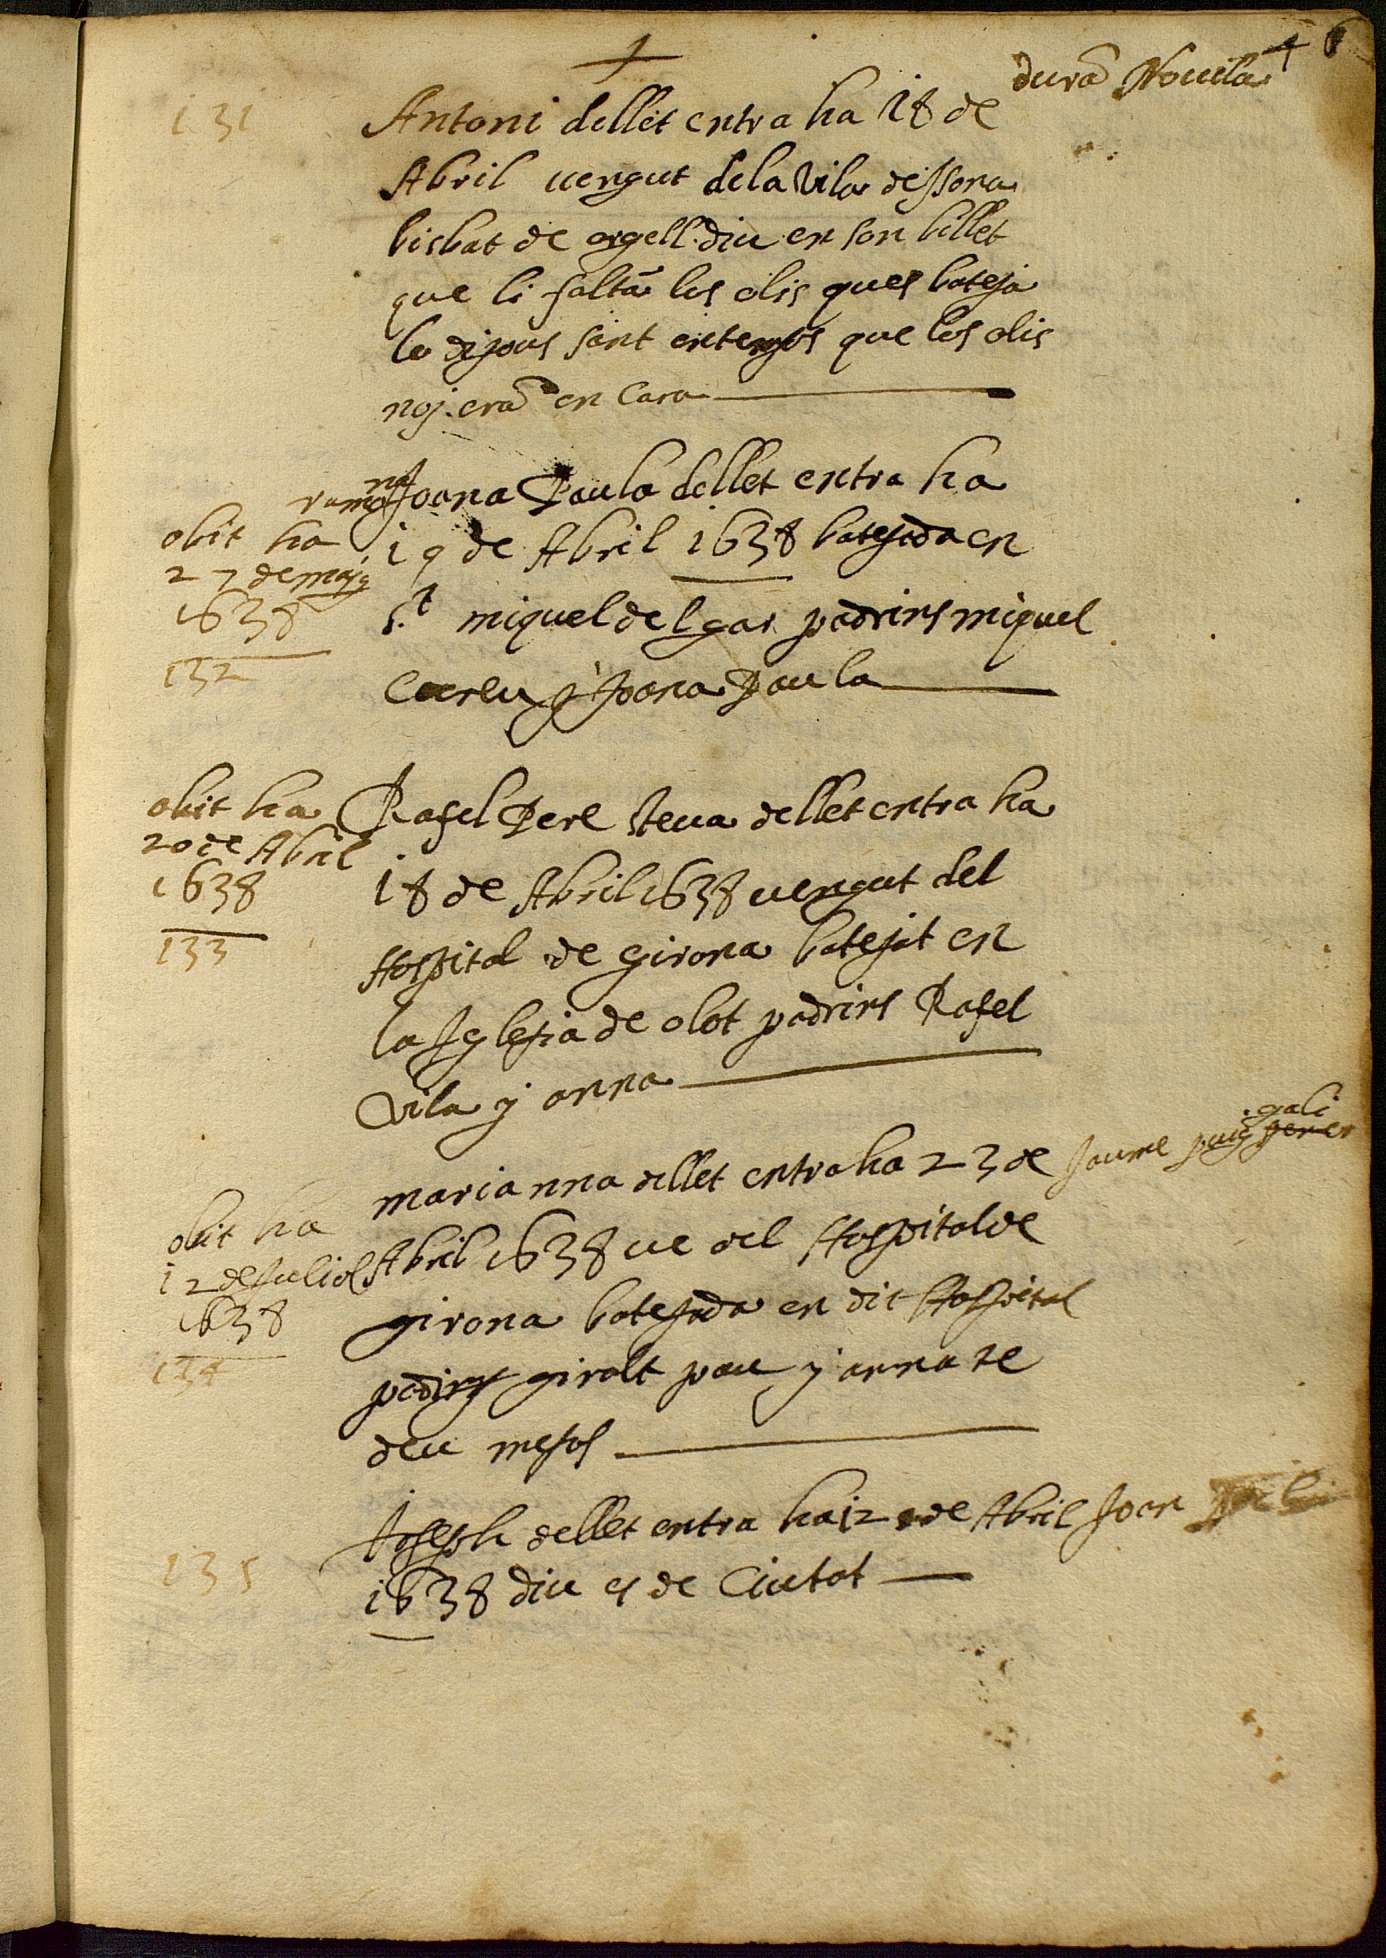 durã Nouila
131
Antoni dellet entra ha 18 de
Abril uengut dela Vila dessona
bisbat de orgell diu en son billet
que li faltã los olis ques bateja
lo dijous sant entengos que los olis
noj erã en Cara
Joana Paula dellet entra ha
obit ha
27 de maig
1638
132
19 de Abril 1638 batejada en
s.t miquel del gar padrins miquel
y Joana Paula
obit ha
20 de Abril
1638
133
Rafel Pere steua dellet entra ha
18 de Abril 1638 uengut del
Hospital de girona batejat en
la Iglesia de olot padrins Rafel
Vila y anna
gali
marianna dellet entra ha 23 de Jaume puig
obit ha
12 de Juliol
1638
134
Abril 1638 ue del Hospital de
girona batejada en dit Hospital
padins giralt pau y anna te
deu mesos
135
Joseph dellet entra ha 12 de Abril Joan
1638 diu es de Ciutat